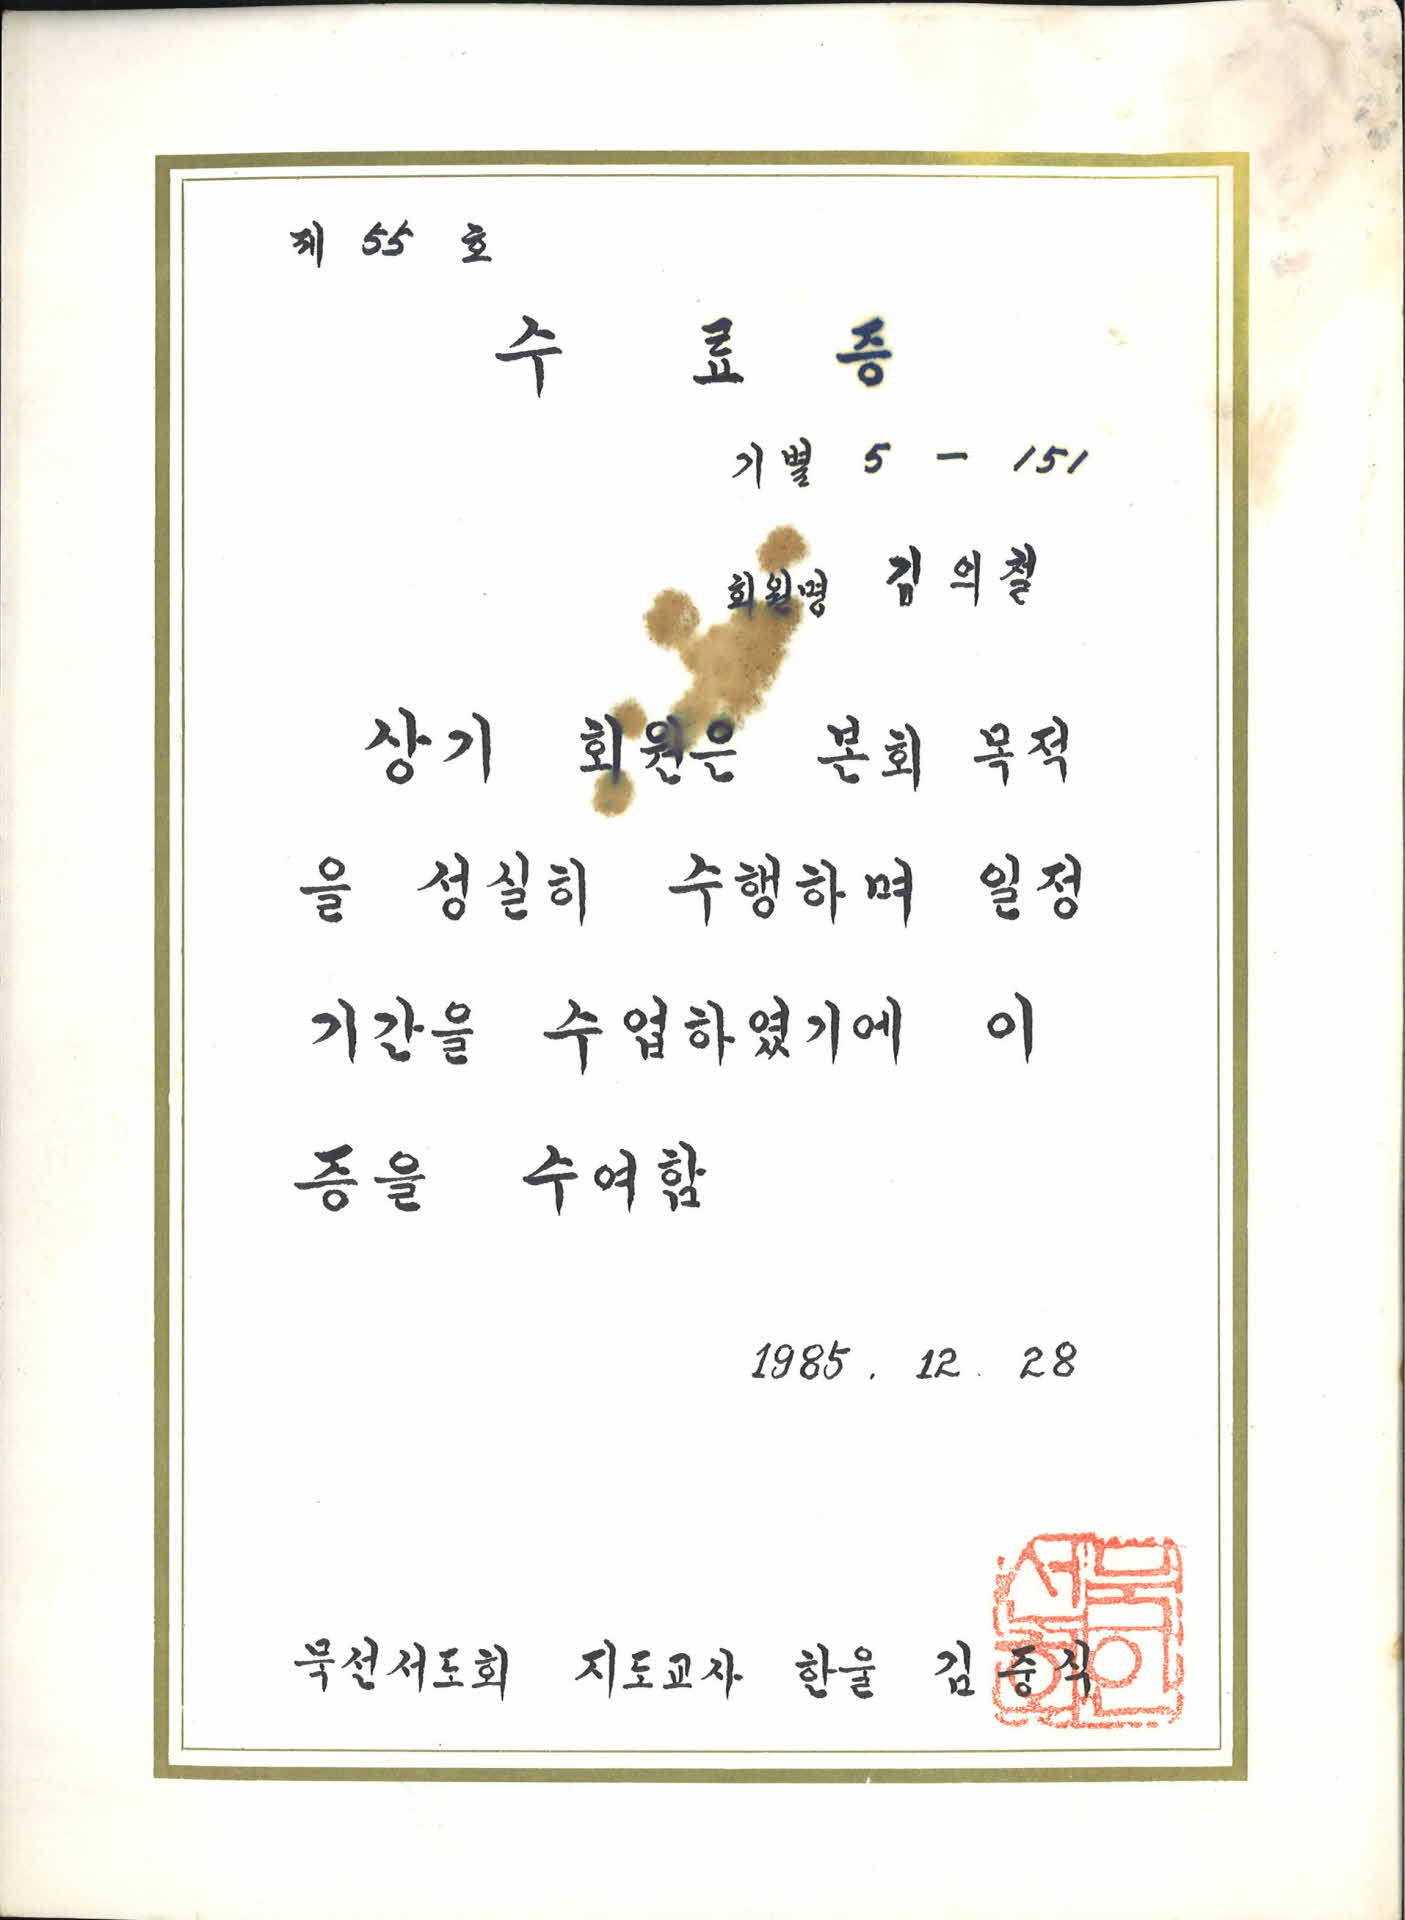 제 55 호
수 료 증
기별 5 - 151
회원명 김의철
상기 회원은 본회 목적
을 성실히 수행하며 일정
기간을 수업하였기에 이
증을 수여함
1985. 12. 28
묵선서도회 지도교사 한울 김중식